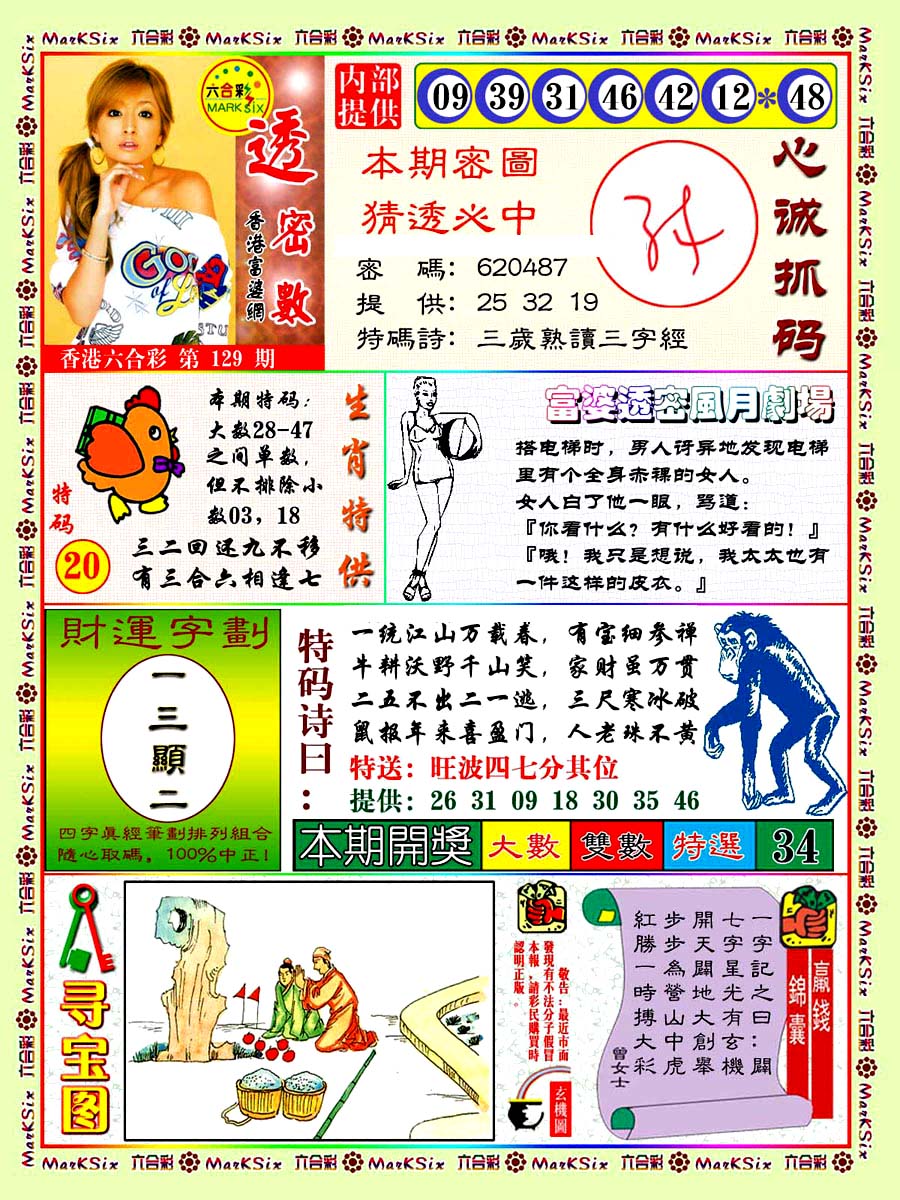 MarKSix 六合彩 MarKSix 六合彩 MarKSix 六合彩 MarKSix 六合彩 MarKSix 六合彩
六合彩
MARK SIX
透密數
香港富婆網
香港六合彩 第 129 期
内部
提供
09 39 31 46 42 12 * 48
本期密圖
猜透必中
密 碼: 620487
提 供: 25 32 19
特碼詩: 三歲熟讀三字經
心诚抓码
本期特码:
大数28-47
之间单数,
但不排除小
数03, 18
三二回还九不移
有三合六相逢七
特码
20
生肖特供
富婆透密風月劇場
搭电梯时, 男人讶异地发现电梯
里有个全身赤裸的女人。
女人白了他一眼, 骂道:
『你看什么? 有什么好看的! 』
『哦! 我只是想说, 我太太也有
一件这样的皮衣。』
財運字劃
一
三
顯
二
四字真經筆劃排列組合
隨心取碼, 100%中正!
特码诗曰:
一统江山万载春, 有宝细参禅
牛耕沃野千山笑, 家财虽万贯
二五不出二一逃, 三尺寒冰破
鼠报年来喜盈门, 人老珠不黄
特送: 旺波四七分其位
提供: 26 31 09 18 30 35 46
本期開獎 大數 雙數 特選 34
寻宝图
敬告:最近市面
發現有不法分子假冒
本報,請彩民購買時
認明正版。
玄機圖
一字記之曰:闢
七字星光有玄機
開天闢地大創舉
步步為營山中虎
紅勝一時搏大彩
曾女士
贏錢
錦囊
MarKSix 六合彩 MarKSix 六合彩 MarKSix 六合彩 MarKSix 六合彩 MarKSix 六合彩